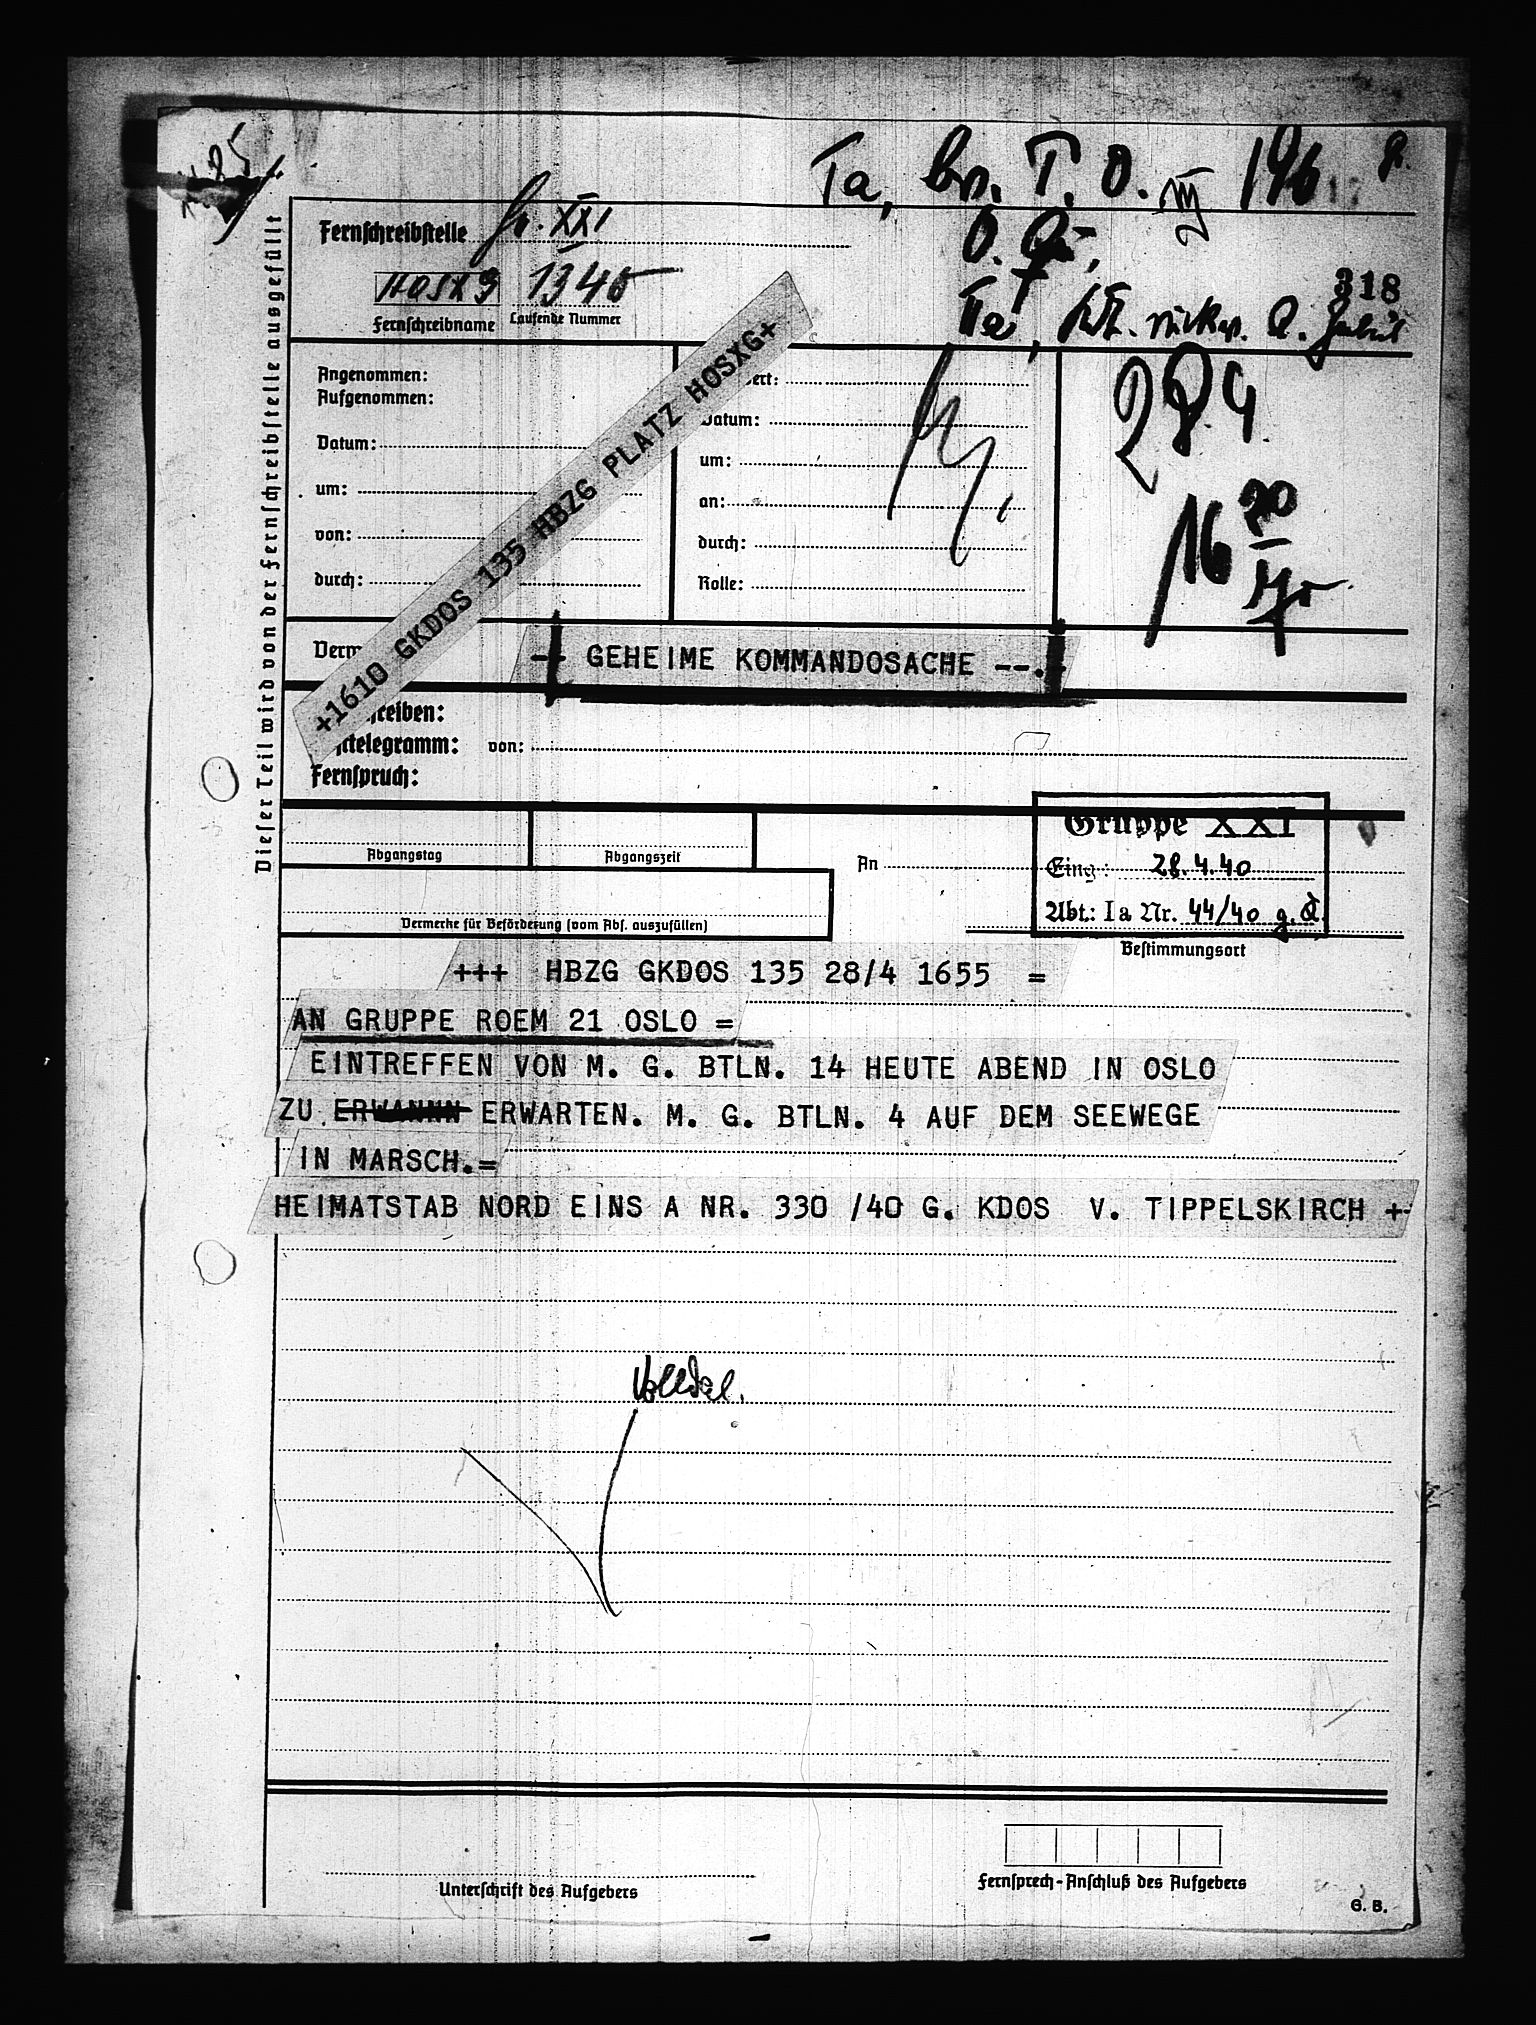 Ia,
318
Fernschreibstelle Gr. XXI
HOSX9 1340
Fernschreibname Laufende Nummer
Dieser Teil wird von der Fernschreibstelle ausgefüllt
Angenommen:
Aufgenommen:
Datum:
um:
von:
durch:
Datum:
um:
an:
durch:
Rolle:
28.4.
+1610 GKDOS 135 HBZG PLATZ HOSXG+
-- GEHEIME KOMMANDOSACHE --.
von:
Fernspruch:
Abgangstag
Abgangszeit
An
Vermerke für Beförderung (vom Abs. auszufüllen)
Gruppe XXI
Eing: 28.4.40
Abt.: Ia Nr. 44/40 g.
Bestimmungsort
+++ HBZG GKDOS 135 28/4 1655 =
AN GRUPPE ROEM 21 OSLO =
EINTREFFEN VON M. G. BTLN. 14 HEUTE ABEND IN OSLO
ZU ERWANNN ERWARTEN. M. G. BTLN. 4 AUF DEM SEEWEGE
IN MARSCH.=
HEIMATSTAB NORD EINS A NR. 330 /40 G. KDOS V. TIPPELSKIRCH +
Unterschrift des Aufgebers
Fernsprech-Anschluß des Aufgebers
G. B.